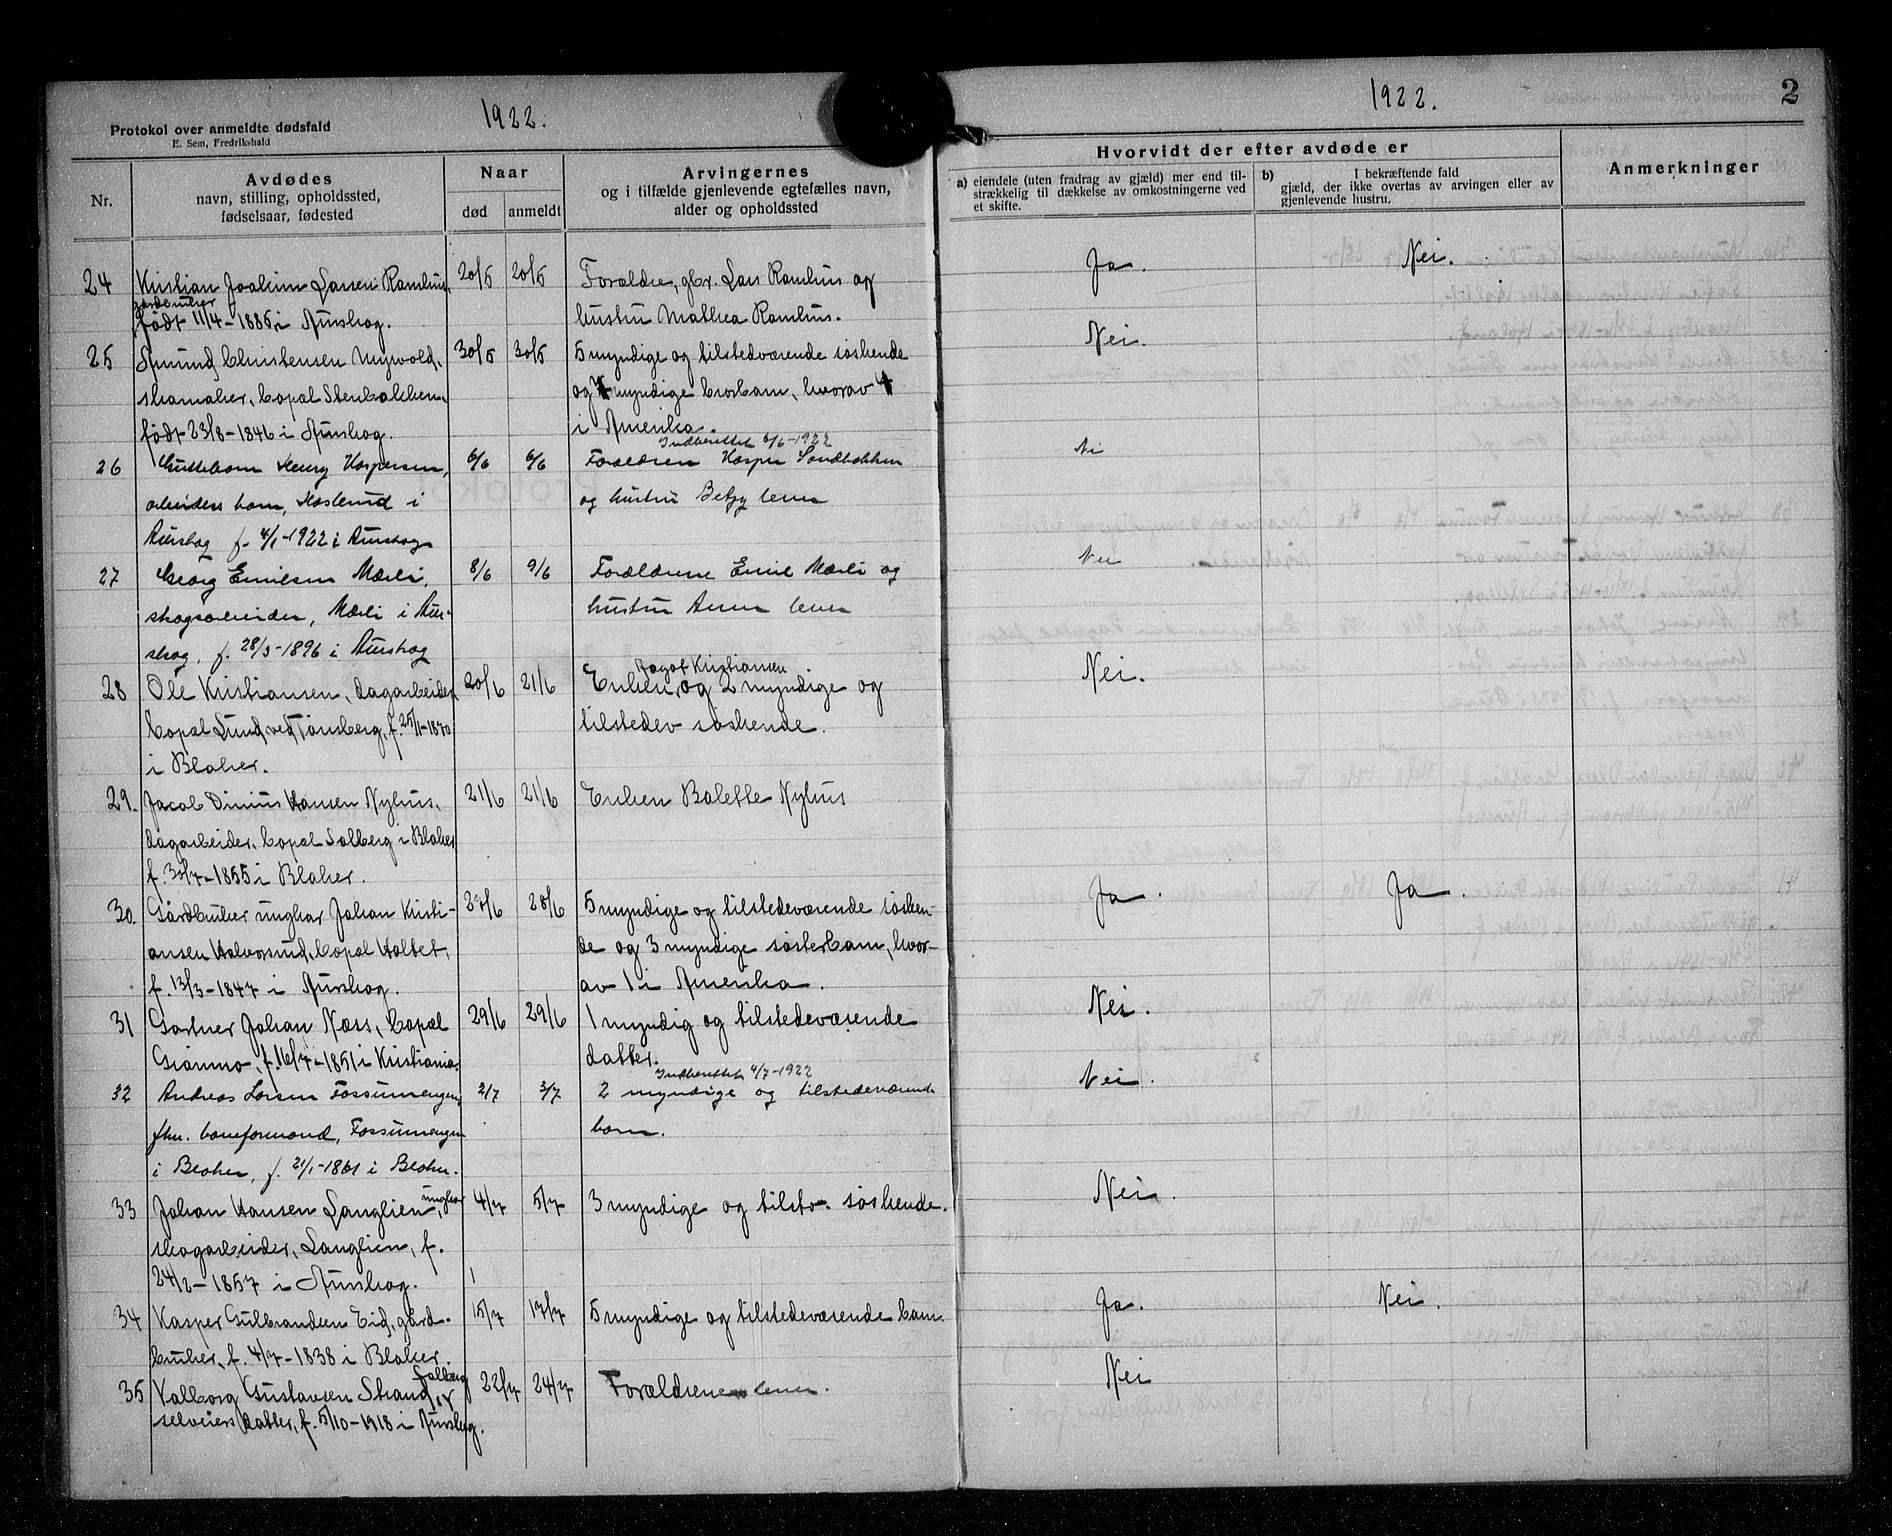 1922.
Protokol over anmeldte dødsfald
E. Sem, Fredrikshald
Nr.
Avdødes
navn, stilling, opholdssted,
fødselsaar, fødested
Naar
død
anmeldt
Arvingernes
og i tilfælde gjenlevende egtefælles navn,
alder og opholdssted
24
Kristian Joakim Larsen Ramhus,
gårdbruker
født 11/4-1885 i Aurskog.
20/5 20/5
Forældre, gbr. Lars Ramhus og
hustru Mathea Ramhus.
25
Amund Christensen Myrvold,
skomaker, bopæl Stenbakken,
født 23/8-1846 i Aurskog.
30/5 30/5
5 myndige og tilstedværende søskende
og 4 myndige brorbarn, hvorav 4
i Amerika.
26
Guttebarn Henry Kaspersen,
arbeiders barn, Haslerud i
Aurskog f. 4/1-1922 i Aurskog
6/6 6/6
Indberettet 6/6-1922
Forældren Kasper Sandbakken
og hustru Betzy lever
27
Georg Emilsen Mærli,
skogsarbeider, Mærli i Aur-
skog, f. 28/3-1896 i Aurskog
8/6 9/6
Forældrene Emil Mærli og
hustru Anna lever
28
Ole Kristiansen, dagarbeider
bopæl Lund ved Tønsberg, f. 25/11-1870
i Blaker.
20/6 21/6
Kristiansen
Enken, og 2 myndige og
tilstedev søskende.
29.
Jacob Dinius Hansen Nyhus,
dagarbeider, bopæl Solberg i Blaker
f. 30/7-1855 i Blaker.
21/6 21/6
Enken Balette Nyhus
30.
Gårdbruker ungkar Johan Kristi-
ansen Halvorsrud, bopæl Holtet,
f. 13/3-1847 i Aurskog.
28/6 28/6
5 myndige og tilstedeværende søsken-
de og 3 myndige søsterbarn, hvor-
av 1 i Amerika.
31
Gartner Johan Næss, bopæl
Grønmo, f. 16/7-1851 i Kristiania.
29/6 29/6
1 myndig og tilstedeværende
datter.
32
Andreas Larsen Fossumengen,
fhv. baneformand, Fossumengen
i Blaker, f. 21/1-1861 i Blaker.
2/7 3/7
Indberettet 4/7-1922
2 myndige og tilstedeværende
barn.
33
Johan Hansen Langlien, ungkar
skogarbeider, Langlien, f.
24/2-1857 i Aurskog.
4/7 5/7
3 myndige og tilstv. søskende.
34
Kasper Gulbrandsen Eid, gård-
bruker, f. 4/7-1838 i Blaker.
15/7 17/7
5 myndige og tilstedeværende barn.
35
Valborg Gustavsen Strand
selveiers datter, f. 5/10-1918 i Aurskog.
22/7 24/7
Forældrene lever.
1922.
2
Hvorvidt der efter avdøde er
a) eiendele (uten fradrag av gjæld) mer end til-
strækkelig til dækkelse av omkostningerne ved
et skifte.
b) I bekræftende fald
gjæld, der ikke overtas av arvingen eller av
gjenlevende hustru.
Anmerkninger
Ja. Nei.
Nei.
Nei
Nei
Nei.
Ja. Ja.
Nei.
Nei.
Nei.
Ja. Nei.
Nei